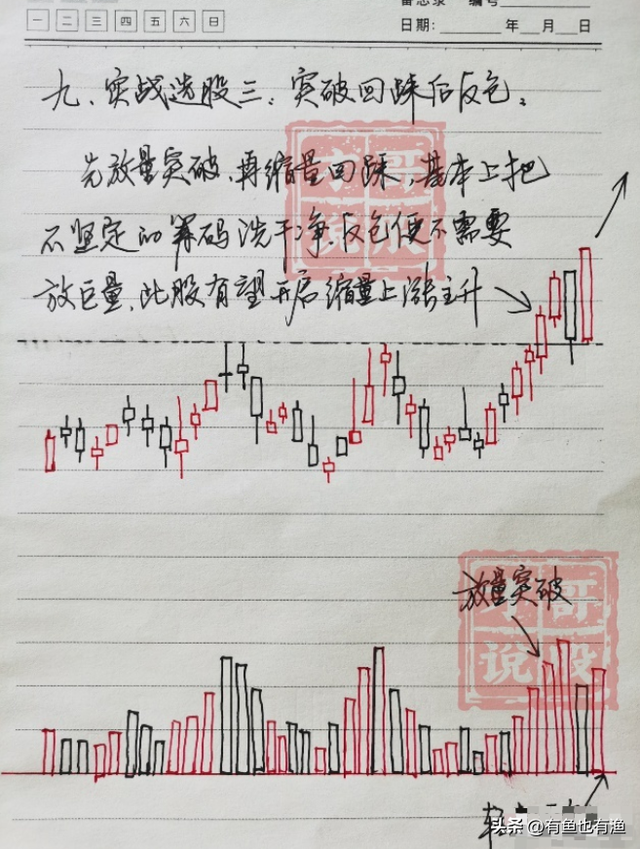 备忘录 编号
一 二 三 四 五 六 日
日期: 年 月 日
九、实战选股三：突破回踩后反包。
先放量突破,再缩量回踩,基本上把
不坚定的筹码洗干净,反包便不需要
放巨量,此股有望开启缩量上涨主升
放量突破
哥
说股
头条 @有鱼也有渔